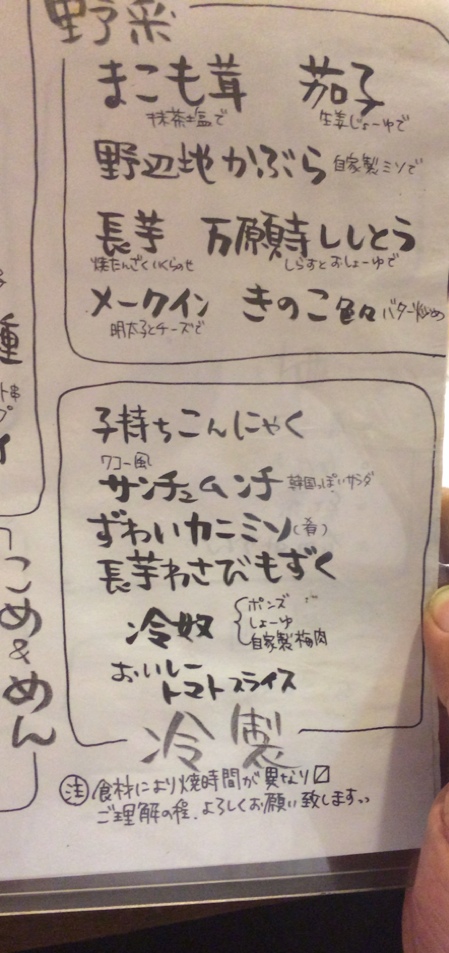 野菜
まこも茸 茄子
抹茶塩で 生姜じょーゆで
野辺地かぶら 自家製ミソで
長芋 万願寺ししとう
焼たんざくいくらのせ しらすとおしょーゆで
メークイン きのこ色々 バター炒め
明太子とチーズで
子持ちこんにゃく
ワコー風
サンチュムンチ 韓国っぽいサラダ
ずわいカニミソ(肴)
長芋わさびもずく
冷奴
ポンズ
しょーゆ
自家製梅肉
おいしー
トマトスライス
冷製
注 食材により焼時間が異なり〼
ご理解の程、よろしくお願い致します。
種
ト串
プ
イ
こめ&めん